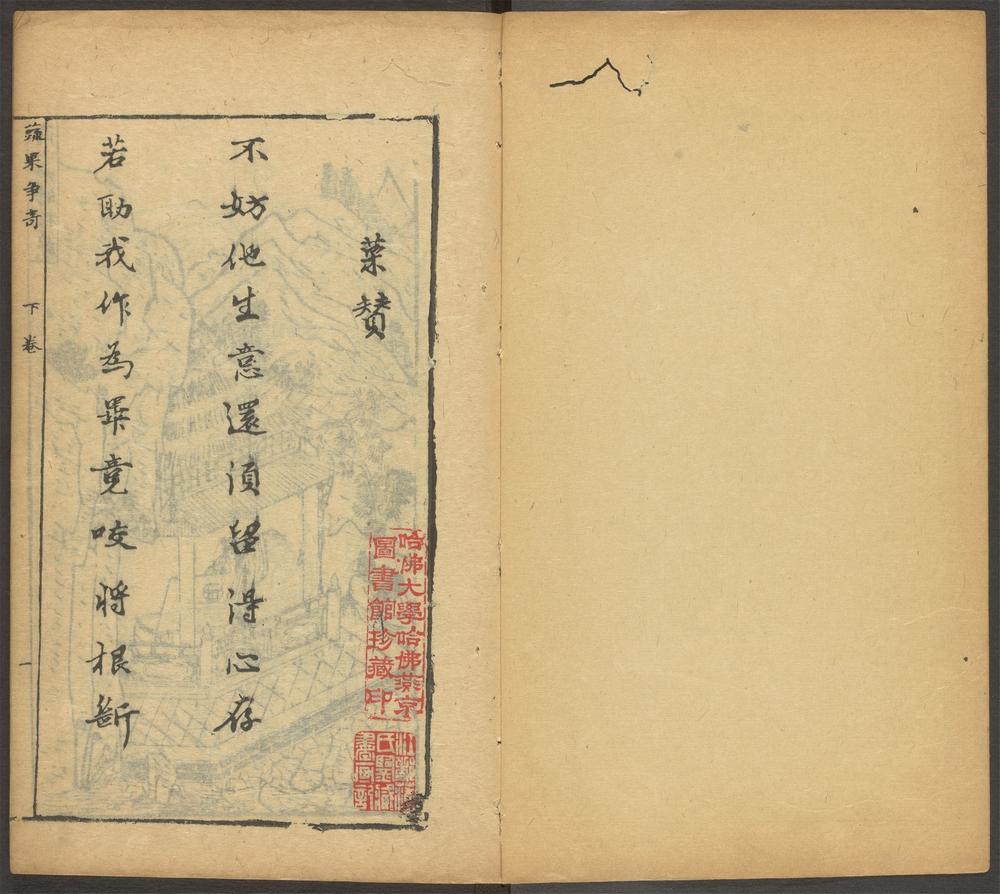 菜賛
不妨他生意還須留得心存
若助我作為畢竟咬將根斷
蔬果争奇 下卷 一
哈佛大學哈佛燕京
圖書館珍藏印